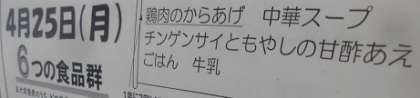 4月25日(月)
6つの食品群
鶏肉のからあげ 中華スープ
チンゲンサイともやしの甘酢あえ
ごはん 牛乳